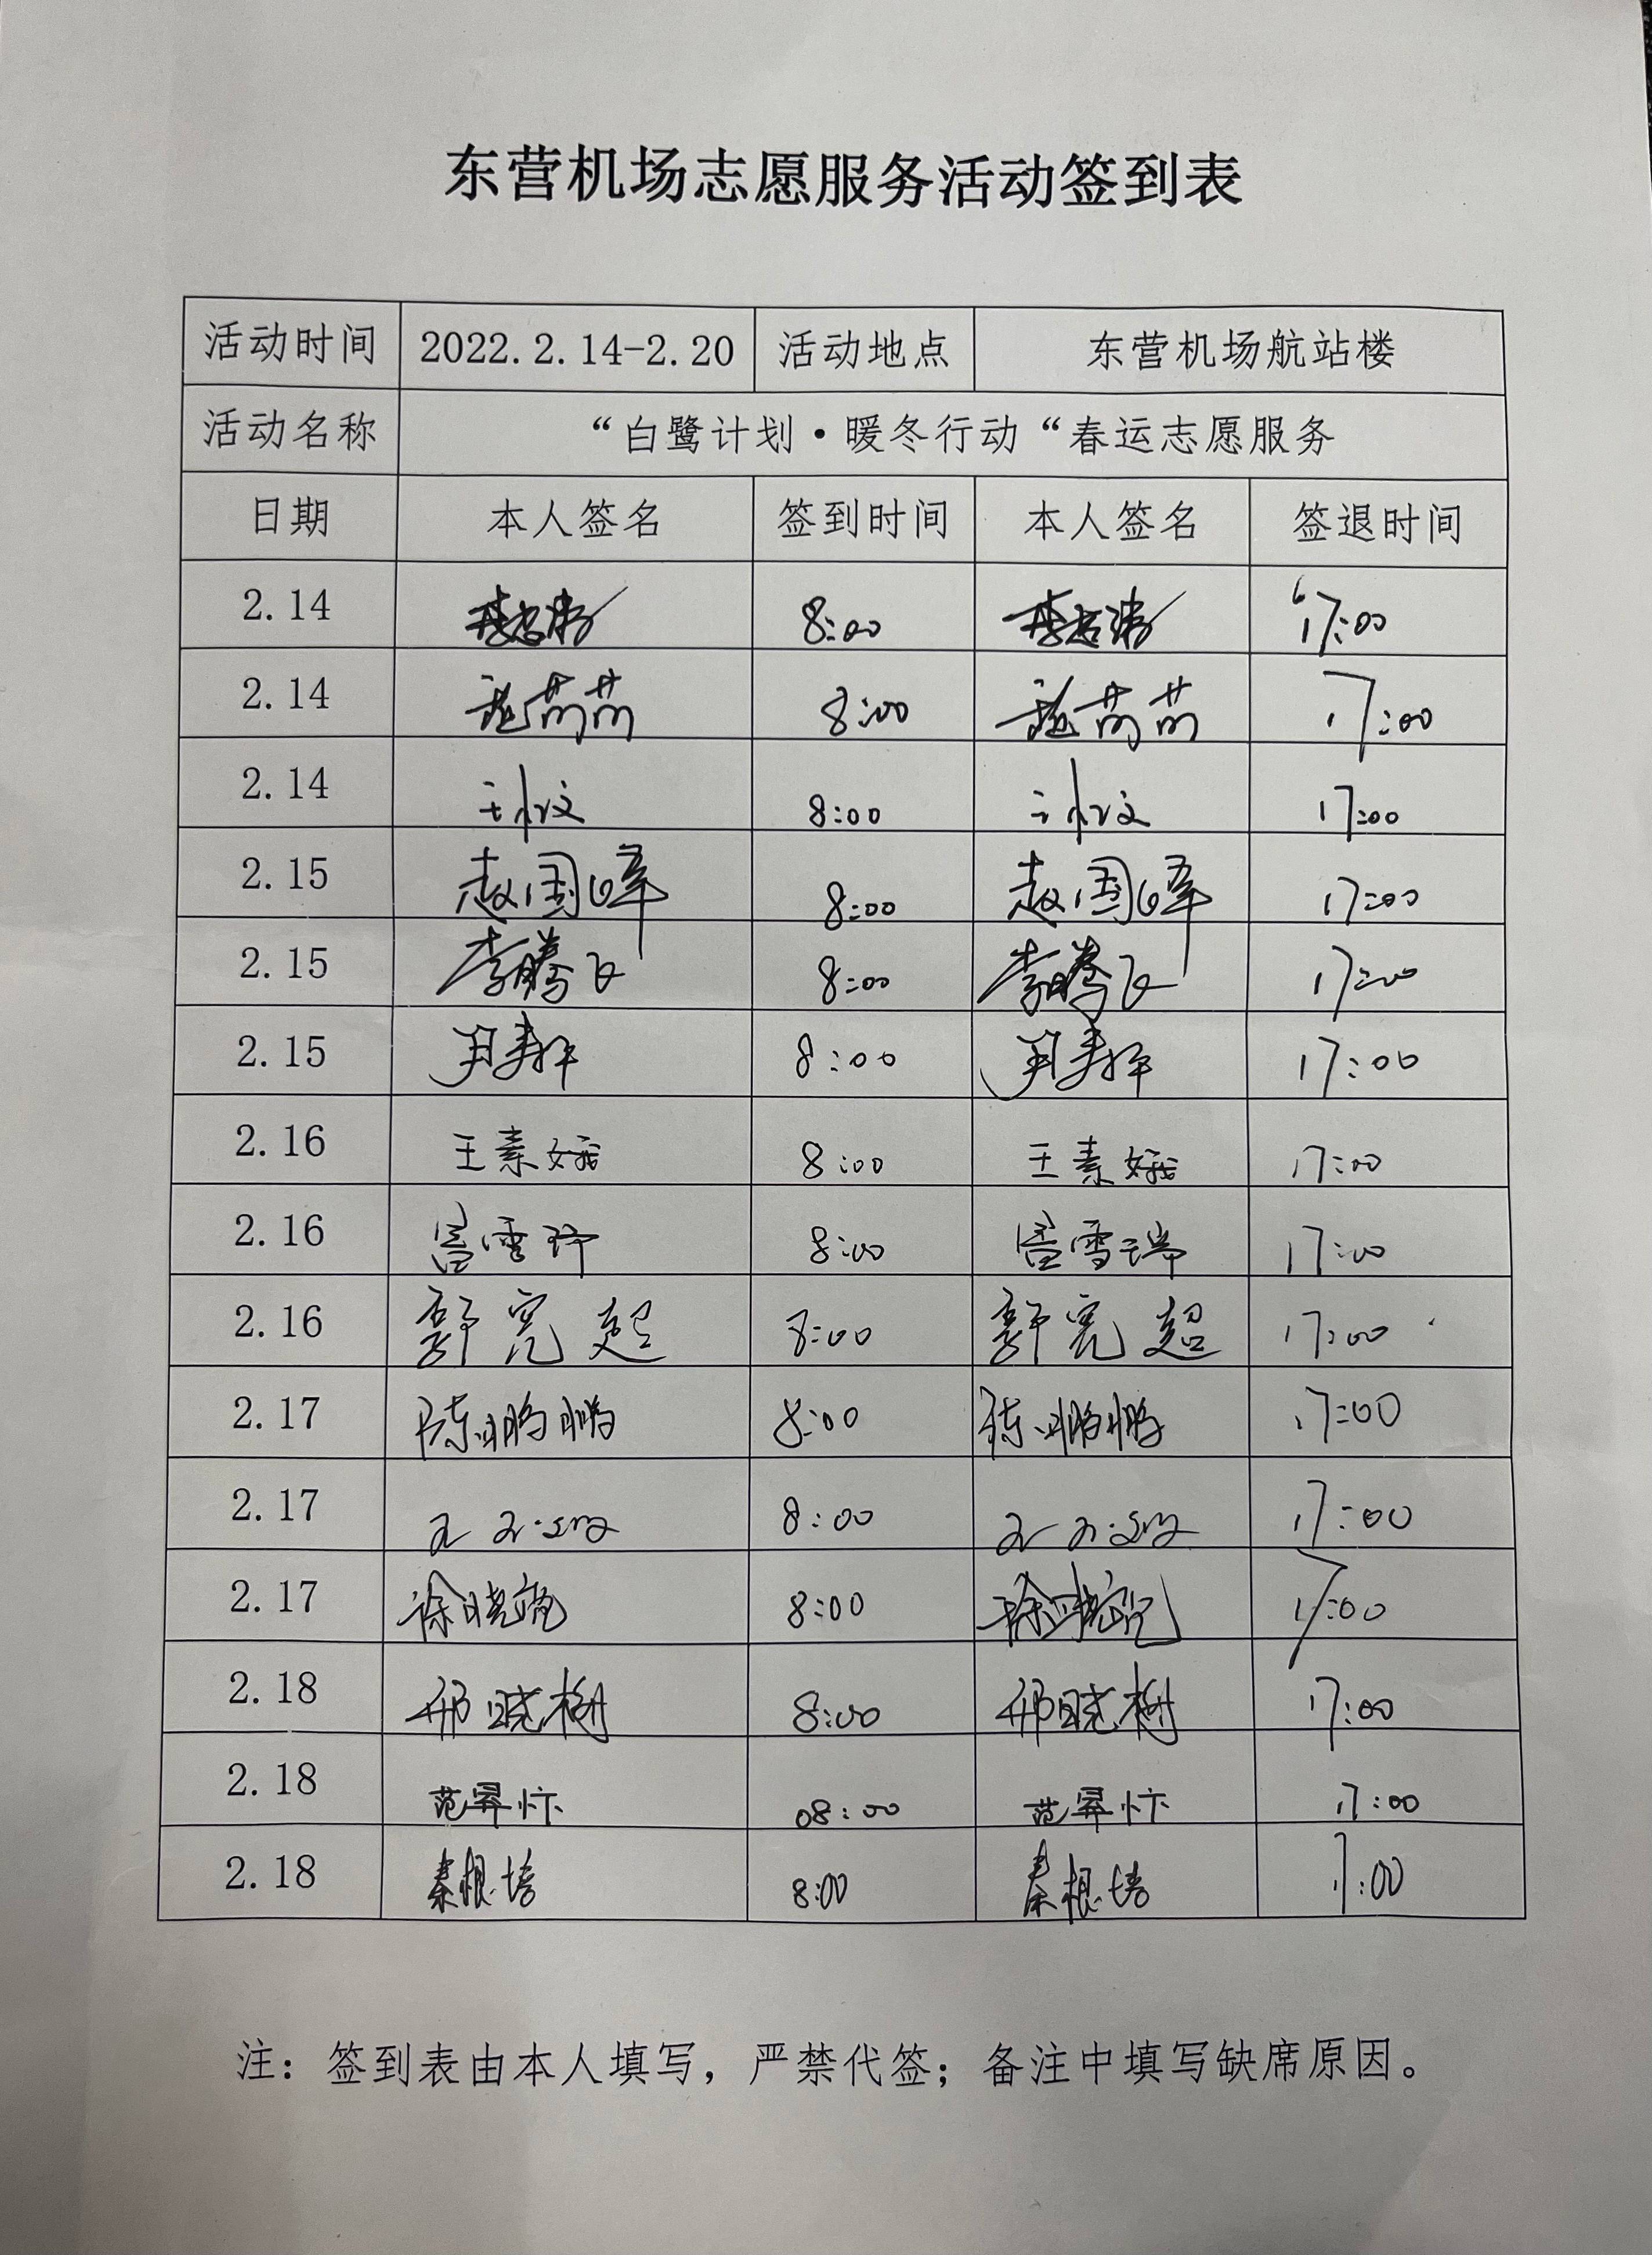 东营机场志愿服务活动签到表
活动时间 2022.2.14-2.20 活动地点 东营机场航站楼
活动名称 “白鹭计划·暖冬行动“春运志愿服务
日期 本人签名 签到时间 本人签名 签退时间
2.14 8:00 17:00
2.14 8:00 17:00
2.14 8:00 17:00
2.15 赵国峰 8:00 17:00
2.15 李腾飞 8:00 李腾飞 17:00
2.15 8:00 17:00
2.16 王素娥 8:00 王素娥 17:00
2.16 8:00 17:00
2.16 8:00 超 17:00
2.17 陈鹏鹏 8:00 陈鹏鹏 17:00
2.17 8:00 17:00
2.17 徐晓 8:00 17:00
2.18 邢晓树 8:00 邢晓树 17:00
2.18 范 忭 08:00 范 忭 17:00
2.18 秦根培 8:00 秦根培 17:00
注：签到表由本人填写，严禁代签；备注中填写缺席原因。